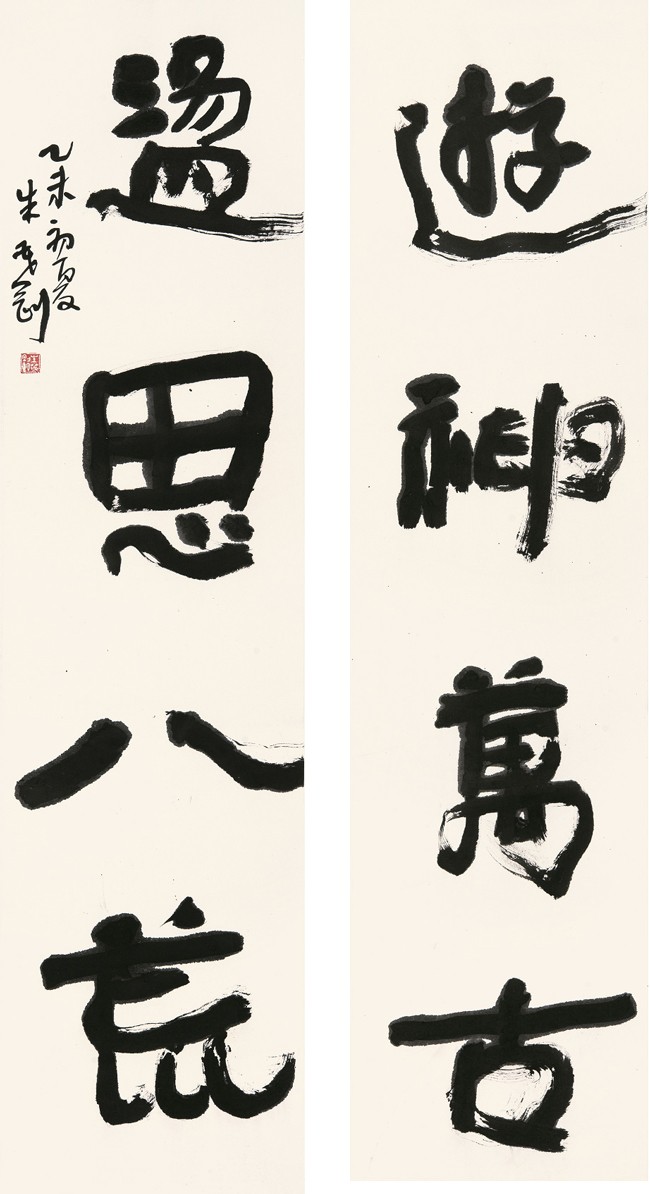 遊神萬古
盪思八荒
乙未初夏
朱